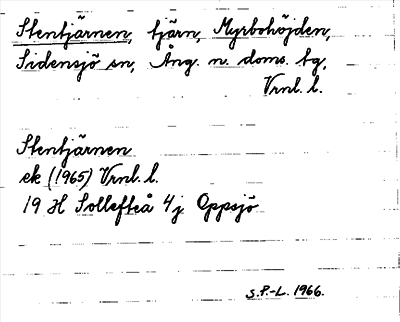 Stentjärnen, tjärn, Myrbohöjden,
Sidensjö sn, Ång. n. doms. tg,
Vrnl. l.
Stentjärnen
ek (1965) Vrnl. l.
19 H Sollefteå 4j Oppsjö
S.P.-L. 1966.